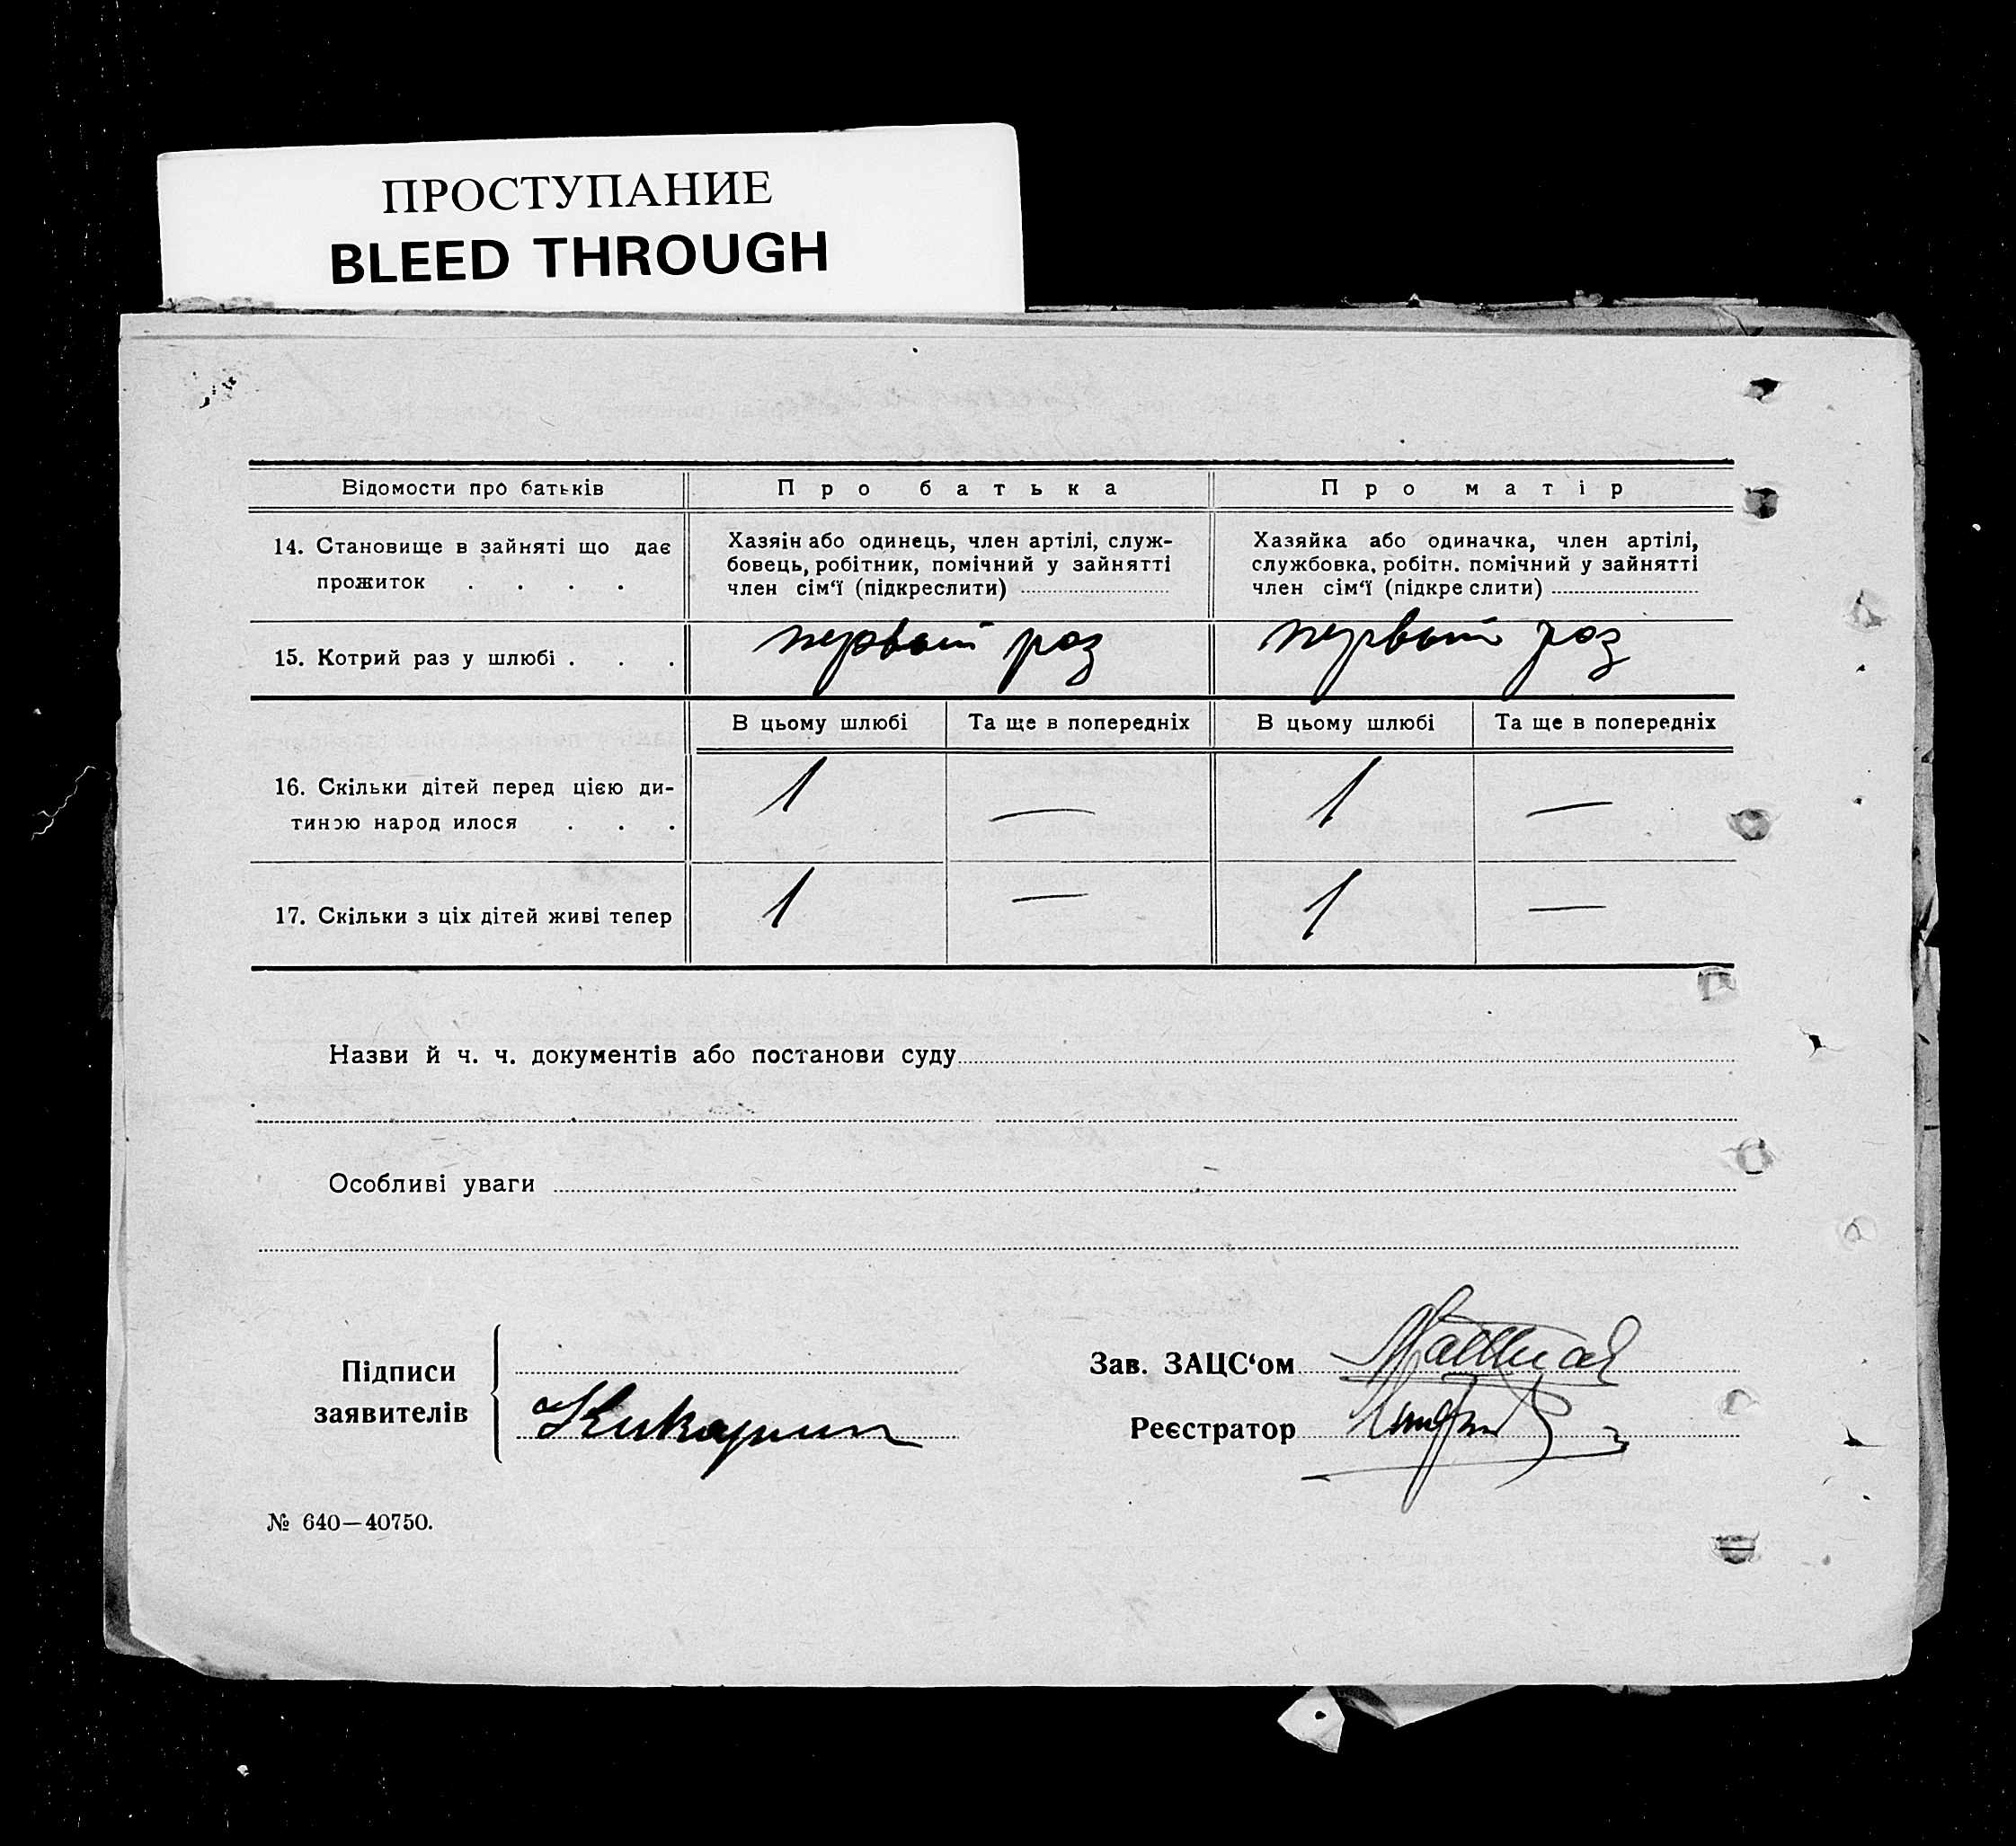 ПРОСТУПАНИЕ
BLEED THROUGH
Відомости про батьків
Про батька
Про матір
14. Становище в зайняті що дає
прожиток . . . .
Хазяїн або одинець, член артілі, служ-
бовець, робітник, помічний у зайнятті
член сім‘ї (підкреслити)
Хазяйка або одиначка, член артілі,
службовка, робітн. помічний у зайнятті
член сім‘ї (підкре слити)
15. Котрий раз у шлюбі . . .
первый раз
первый раз
В цьому шлюбі
Та ще в попередніх
В цьому шлюбі
Та ще в попередніх
16. Скільки дітей перед цією ди-
тиною народ илося . . .
1 — 1 —
17. Скільки з ціх дітей живі тепер
1 — 1 —
Назви й ч. ч. документів або постанови суду
Особливі уваги
Підписи
заявителів
Зав. ЗАЦС‘ом
Реєстратор
№ 640—40750.